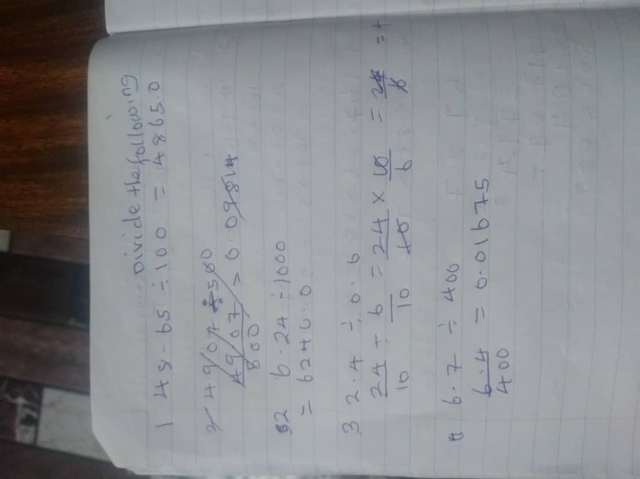 Divide the following
1 48.65 ÷ 100 = 4865.0
2 49.07 ÷ 500
4907 = 0.09814
500
2 6.24 ÷ 1000
= 6240.0
3 2.4 ÷ 0.6
24 ÷ 6 = 24 × 10 = 24
10 10 10 6 6
6.7 ÷ 400
6.4 = 0.01675
400